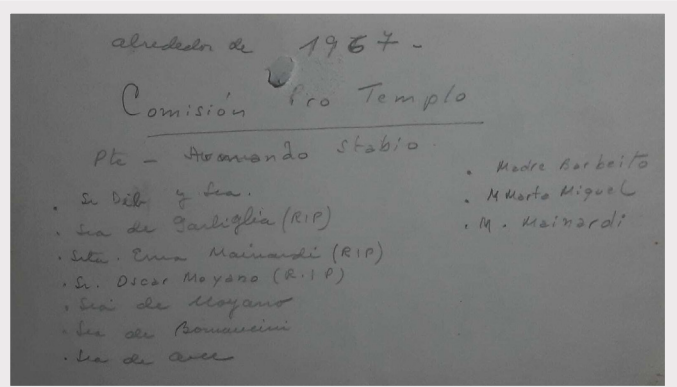 alrededor de 1967-
Comisión Pro Templo
Pte - Armando Stabio.
. Sr Deb y Sra.
. Sra de Garliglia (RIP)
. Srta. Ema Mainardi (RIP)
. Sr. Oscar Moyano (R.I.P)
. Sra de Moyano
. Sra de Bomancini
. Sra de
. Madre Barbeito
. M Marta Miguel
. M. Mainardi